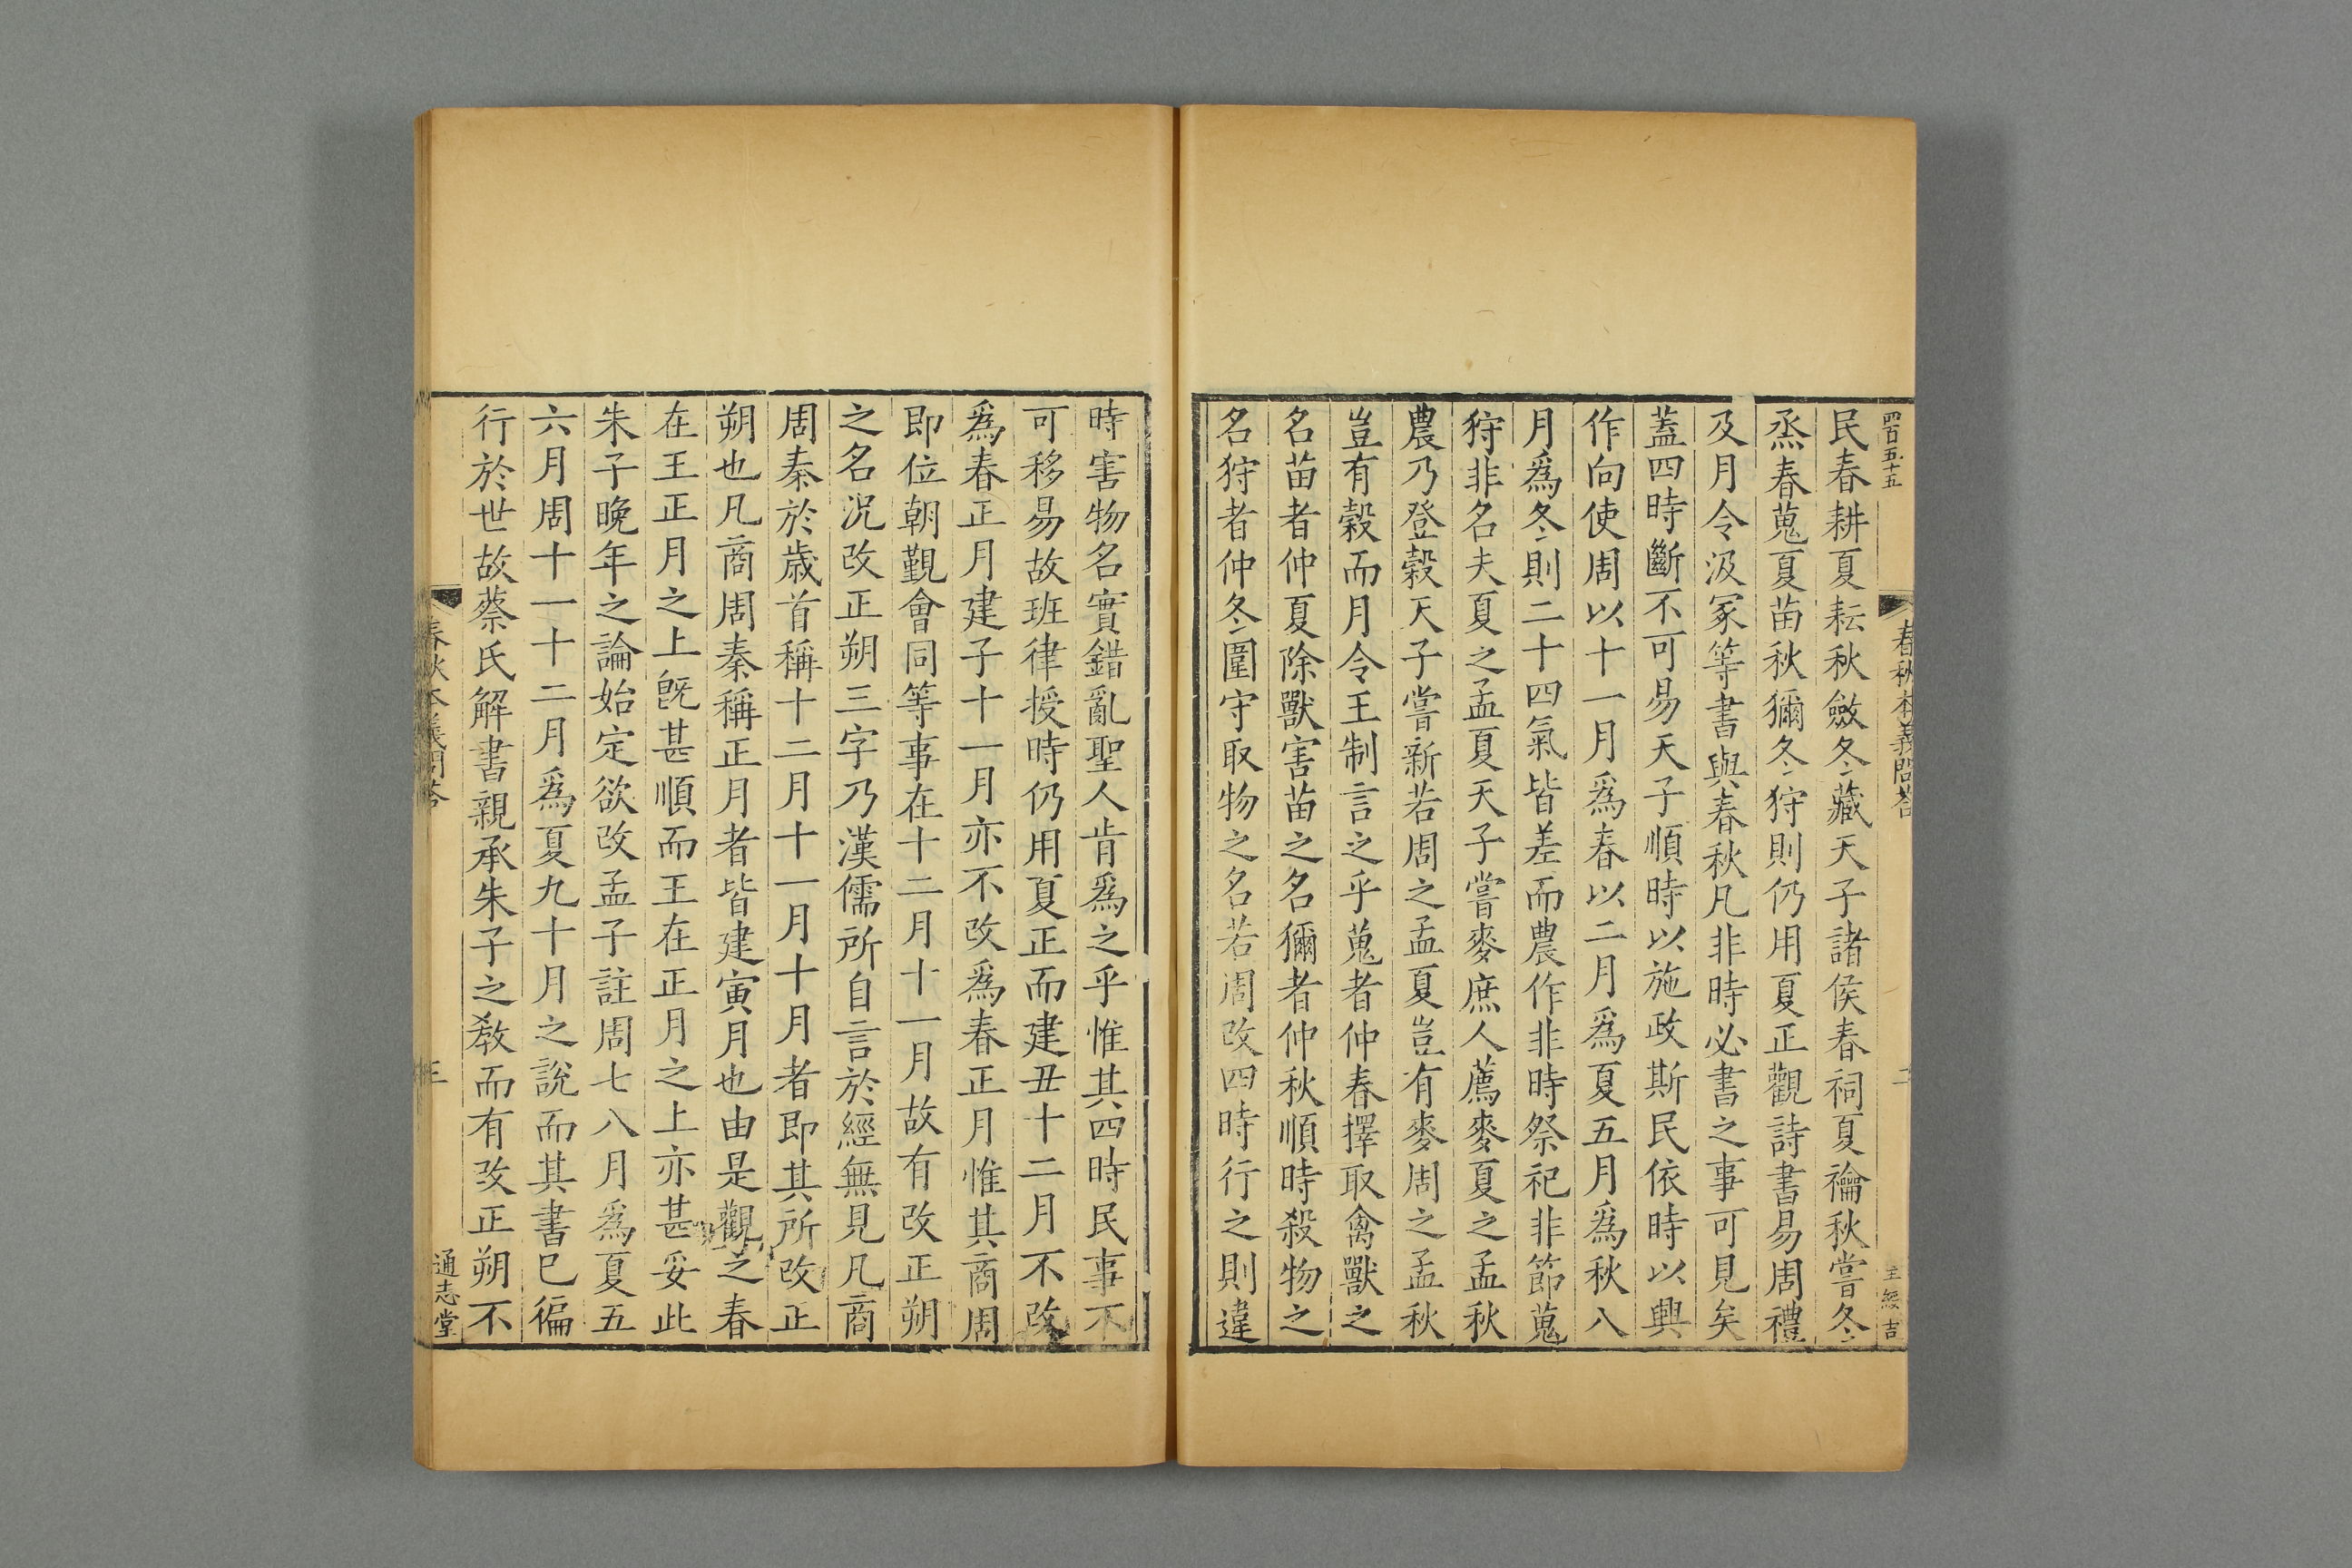 四百五十五
春秋本義問荅
二
民春耕夏耘秋斂冬藏天子諸侯春祠夏禴秋嘗冬
烝春蒐夏苗秋獮冬狩則仍用夏正觀詩書易周禮
及月令汲冢等書與春秋凡非時必書之事可見矣
蓋四時斷不可易天子順時以施政斯民依時以興
作向使周以十一月爲春以二月爲夏五月爲秋八
月爲冬則二十四氣皆差而農作非時祭祀非節蒐
狩非名夫夏之孟夏天子嘗麥庶人薦麥夏之孟秋
農乃登穀天子嘗新若周之孟夏豈有麥周之孟秋
豈有穀而月令王制言之乎蒐者仲春擇取禽獸之
名苗者仲夏除獸害苗之名獮者仲秋順時殺物之
名狩者仲冬圍守取物之名若周改四時行之則違
時害物名實錯亂聖人肯爲之乎惟其四時民事不
可移易故班律授時仍用夏正而建丑十二月不改
爲春正月建子十一月亦不改爲春正月惟其商周
即位朝覲會同等事在十二月十一月故有改正朔
之名況改正朔三字乃漢儒所自言於經無見凡商
周秦於歲首稱十二月十一月十月者即其所改正
朔也凡商周秦稱正月者皆建寅月也由是觀之春
在王正月之上旣甚順而王在正月之上亦甚妥此
朱子晚年之論始定欲改孟子註周七八月爲夏五
六月周十一十二月爲夏九十月之說而其書已徧
行於世故蔡氏解書親承朱子之教而有改正朔不
春秋本義問荅
三
通志堂